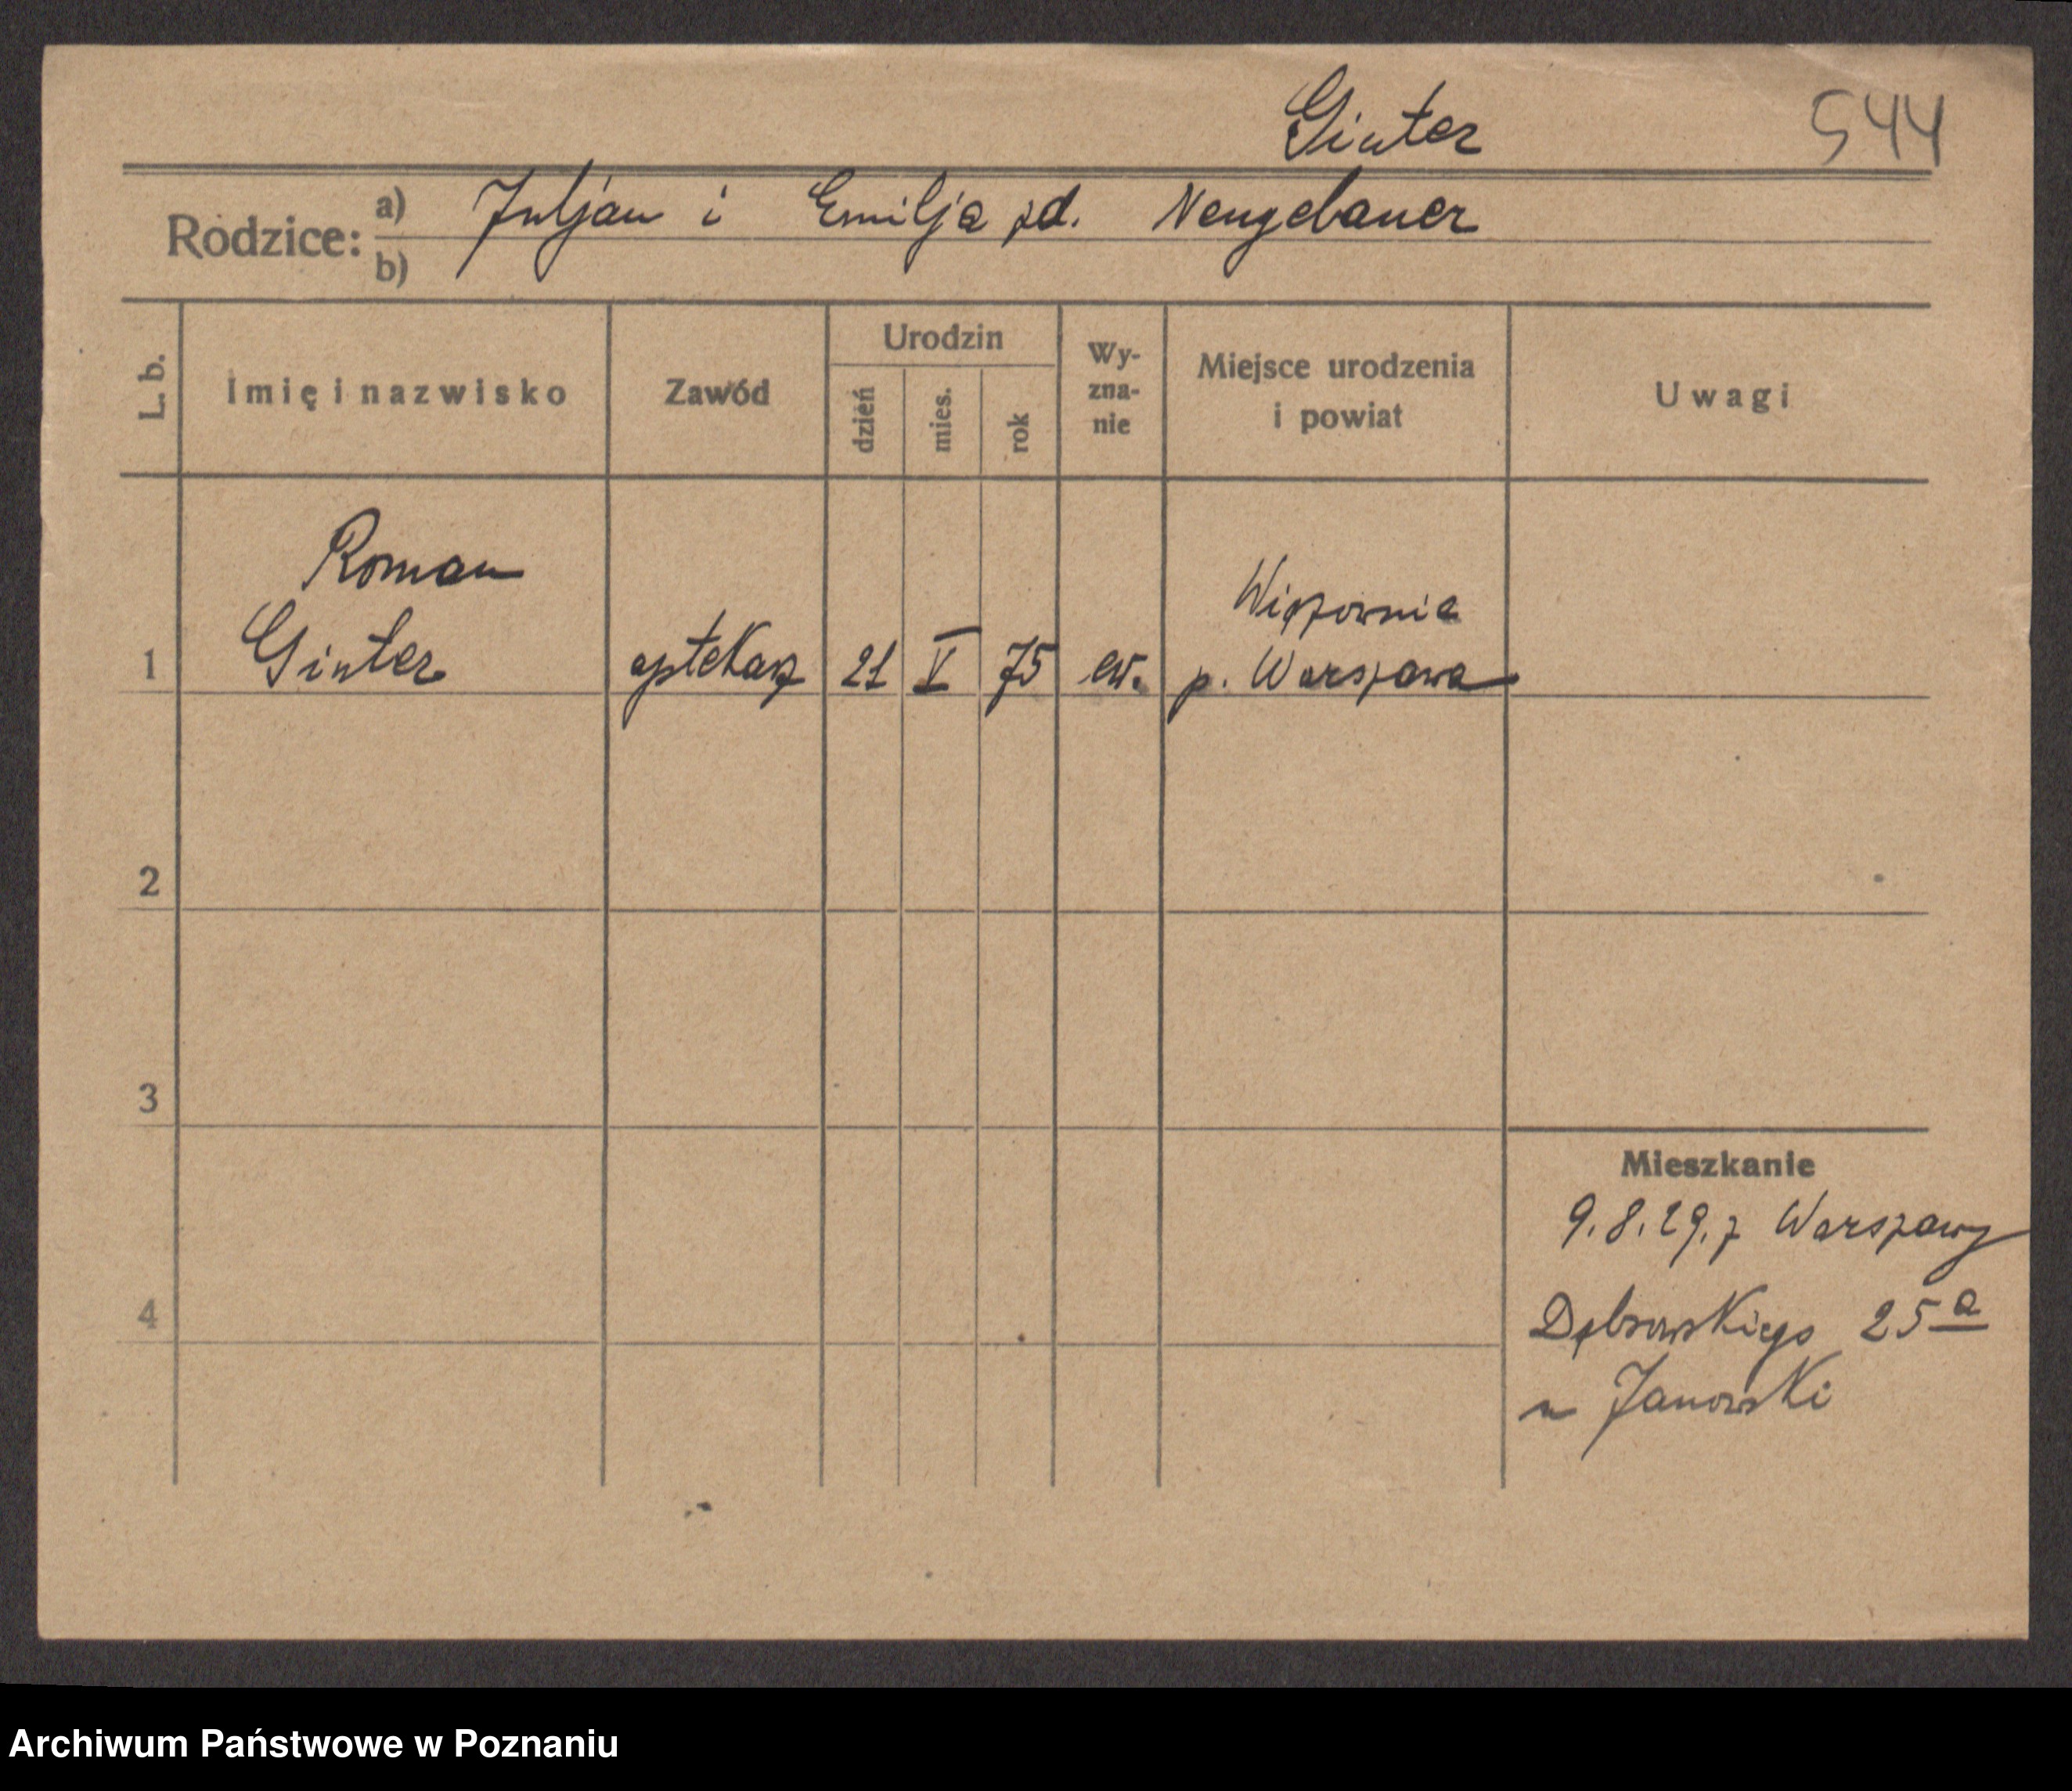 Ginter 544
Rodzice: a) Juljan i Emilja zd. Neugebauer
b)
L. b. Imię i nazwisko Zawód Urodzin dzień mies. rok Wy-zna-nie Miejsce urodzenia i powiat Uwagi
Roman Wiązownia
1 Ginter aptekarz 21 V 75 ew. p. Warszawa
2
3
Mieszkanie
9.8.29. z Warszawy
4 Dąbrowskiego 25a
u Janowski
Archiwum Państwowe w Poznaniu